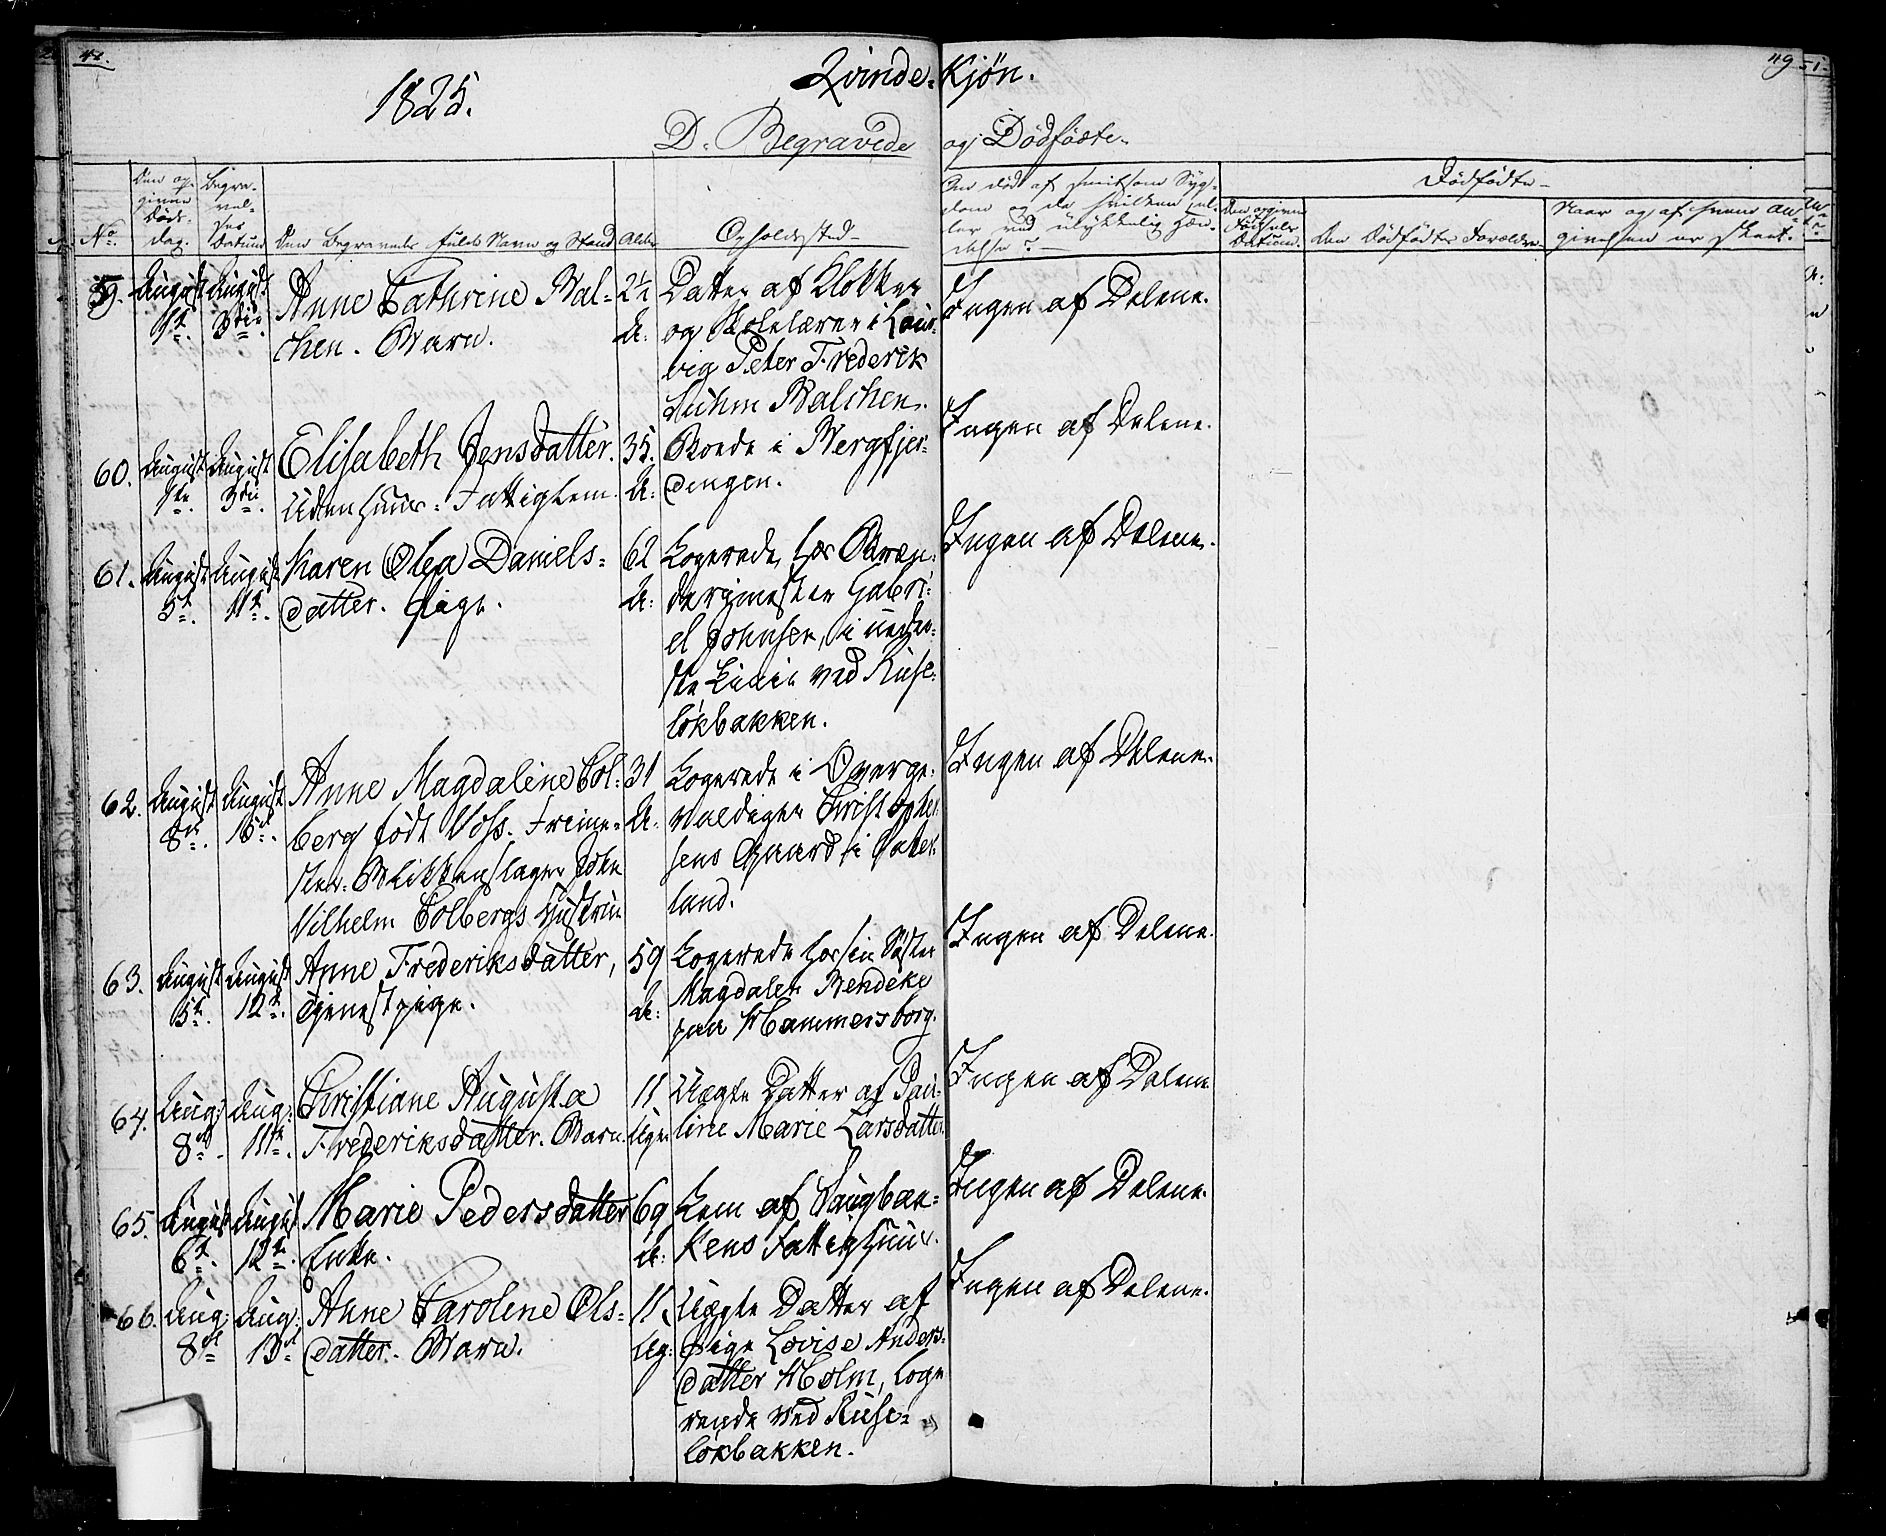 1825.
Qvinde-Kjøn.
119
D. Begravede og Dødfødte.
No.
Den opgivne Døds-dag.
Begravelses Datum
Den Begravedes fulde Navn og Stand
Alder
Opholdssted
Om død af smitsom Sygdom og da hvilken, eller ved ulykkelig Hændelse?
Dødfødte
Den opgivne Fødsels Datum.
Den Dødfødtes Forældre
Naar og af hvem Angivelsen er skeet.
59. August 1te. August 3die. Anne Cathrine Balchen. Barn. 2½ A: Datter af Klokker og Skolelærer i Laurvig Peter Frederik Suhm Balchen. Ingen af Delene.
60. August 1te. August 3die. Elisabeth Jensdatter. Udenhuus-Fattiglem. 35. A: Boede i Bergfjerdingen. Ingen af Delene.
61. August 5te. August 11te. Karen Olea Danielsdatter. Pige. 62 A: Logerede hos Brændevinsmester Gabriel Johnsen, i nederste Linie ved Ruseløkbakken. Ingen af Delene.
62. August 8de. August 15de. Anne Magdalene Colberg født Voss. Frimester-Blikkenslager John Vilhelm Colbergs Hustrue 31 A: Logerede i Overgevaldiger Christophersens Gaard i Vaterland. Ingen af Delene.
63. August 5te. August 12te. Anne Frederiksdatter, Tjenestpige. 59 A: Logerede hos sin Søster Magdalen Bendeke paa Hammersborg. Ingen af Delene.
64. Aug: 8de. Aug: 11te. Christiane Augusta Frederiksdatter. Barn 11 Uger Uægte Datter af Pauline Marie Larsdatter. Ingen af Delene
65. August 6te. August 12te. Marie Pedersdatter Enke. 69 A: Lem af Saugbankens Fattighuus. Ingen af Delene.
66. Aug: 8de Aug: 13de Anne Caroline Olsdatter. Barn. 11 Ug: Uægte Datter af Pige Lovise Andersdatter Holm, logerende ved Ruseløkbakken. Ingen af Delene.